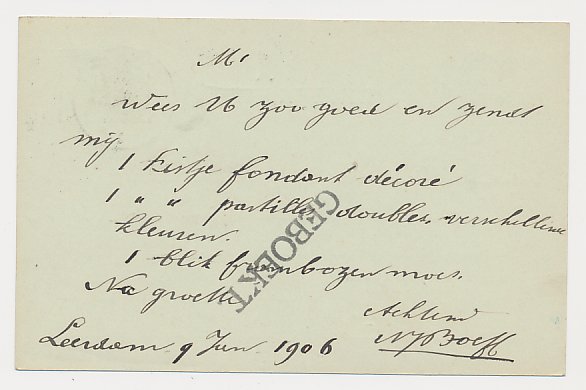 Mr
Wees U zoo goed en zendt
mij
1 Kistje fondant décoré
1 " " pastilles doubles, verschillende
kleuren.
1 blik frambozen moes.
Na groete
Achtend
Leerdam 9 Jun 1906
GEBOEKT